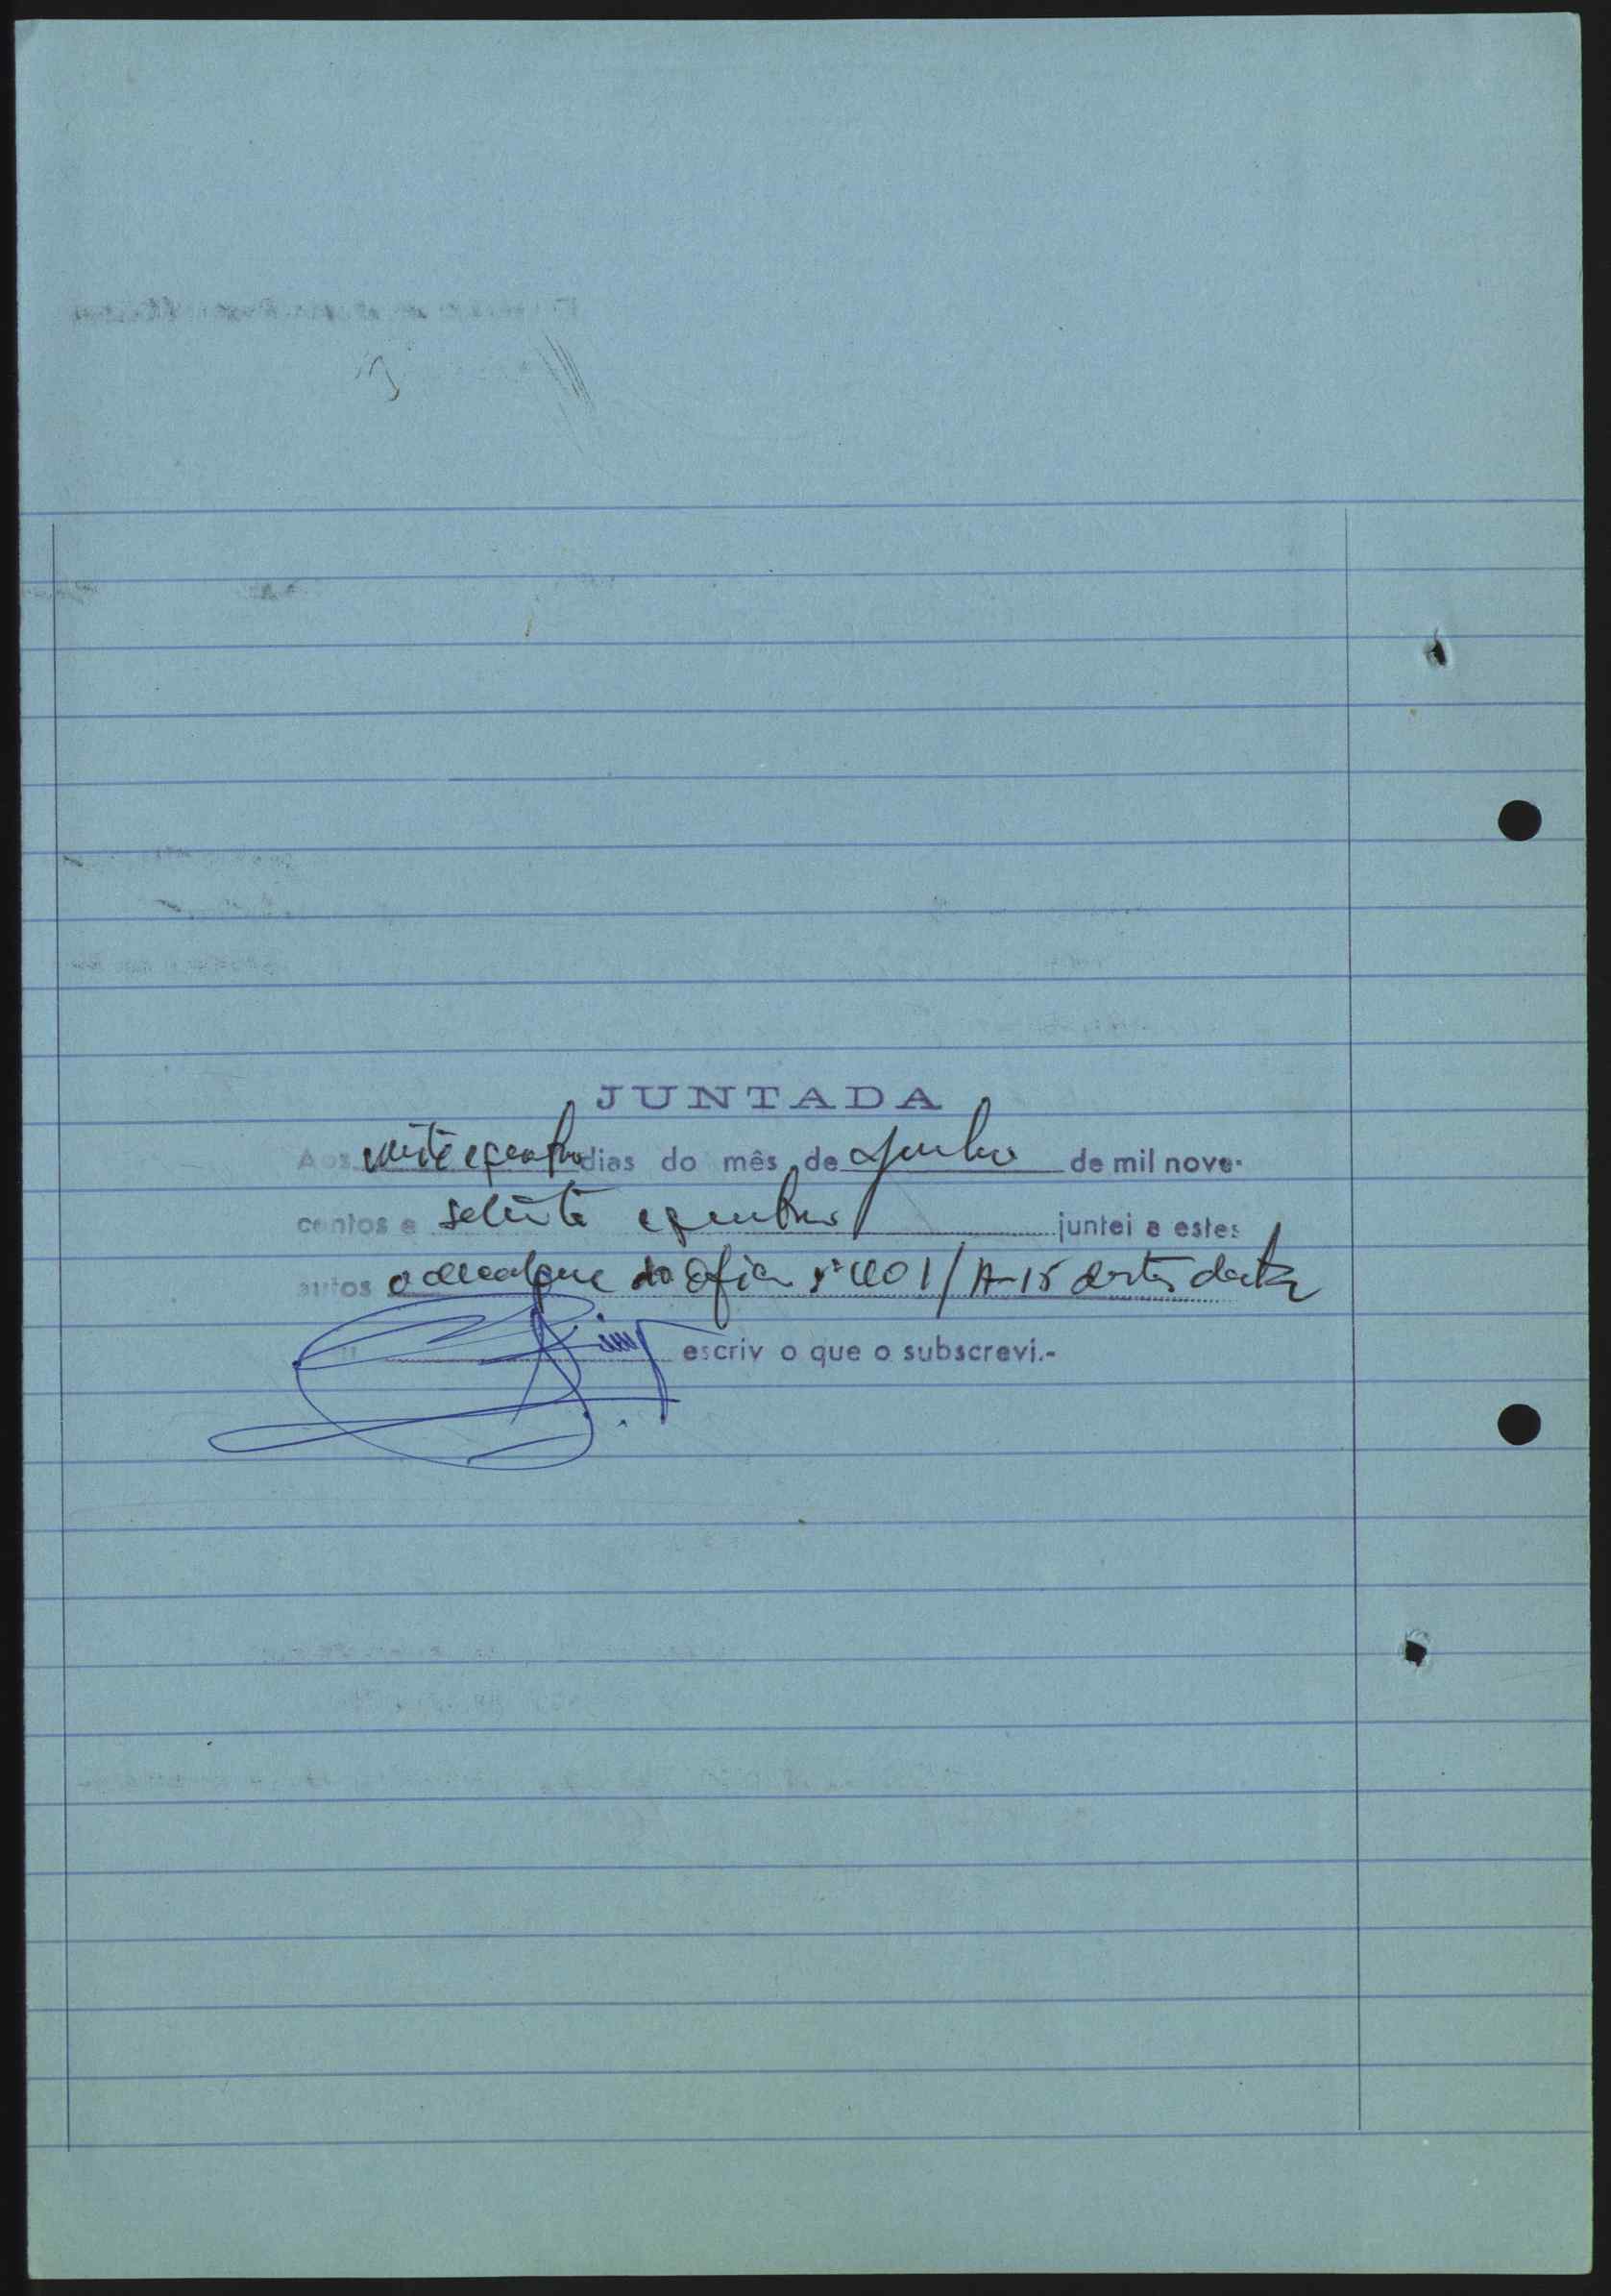 JUNTADA
Aos vinte e quatro dias do mês de Junho de mil nove-
centos e setenta e quatro juntei a estes
autos o decalque do Ofício nº 1101/A-15 desta data
escriv o que o subscrevi.-